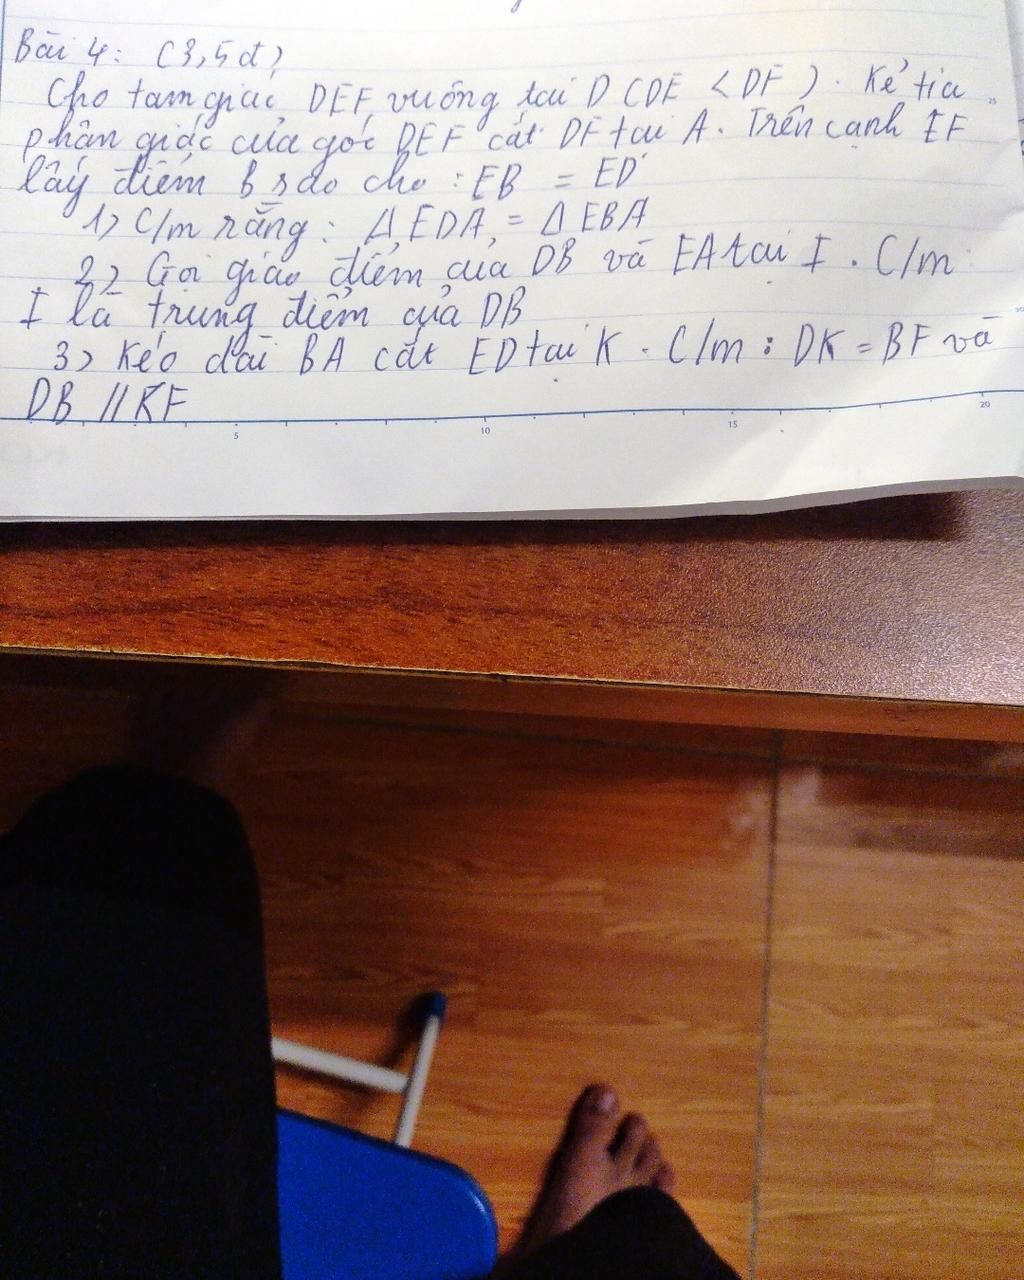 Bài 4: (3,5đ)
Cho tam giác DEF vuông tại D (DE < DF). Kẻ tia
phân giác của góc DEF cắt DF tại A. Trên cạnh EF
lấy điểm B sao cho : EB = ED
1) C/m rằng : Δ EDA = Δ EBA
2) Gọi giao điểm của DB và EA tại I. C/m
I là trung điểm của DB
3) Kéo dài BA cắt ED tại K. C/m : DK = BF và
DB // KF
5 10 15 20